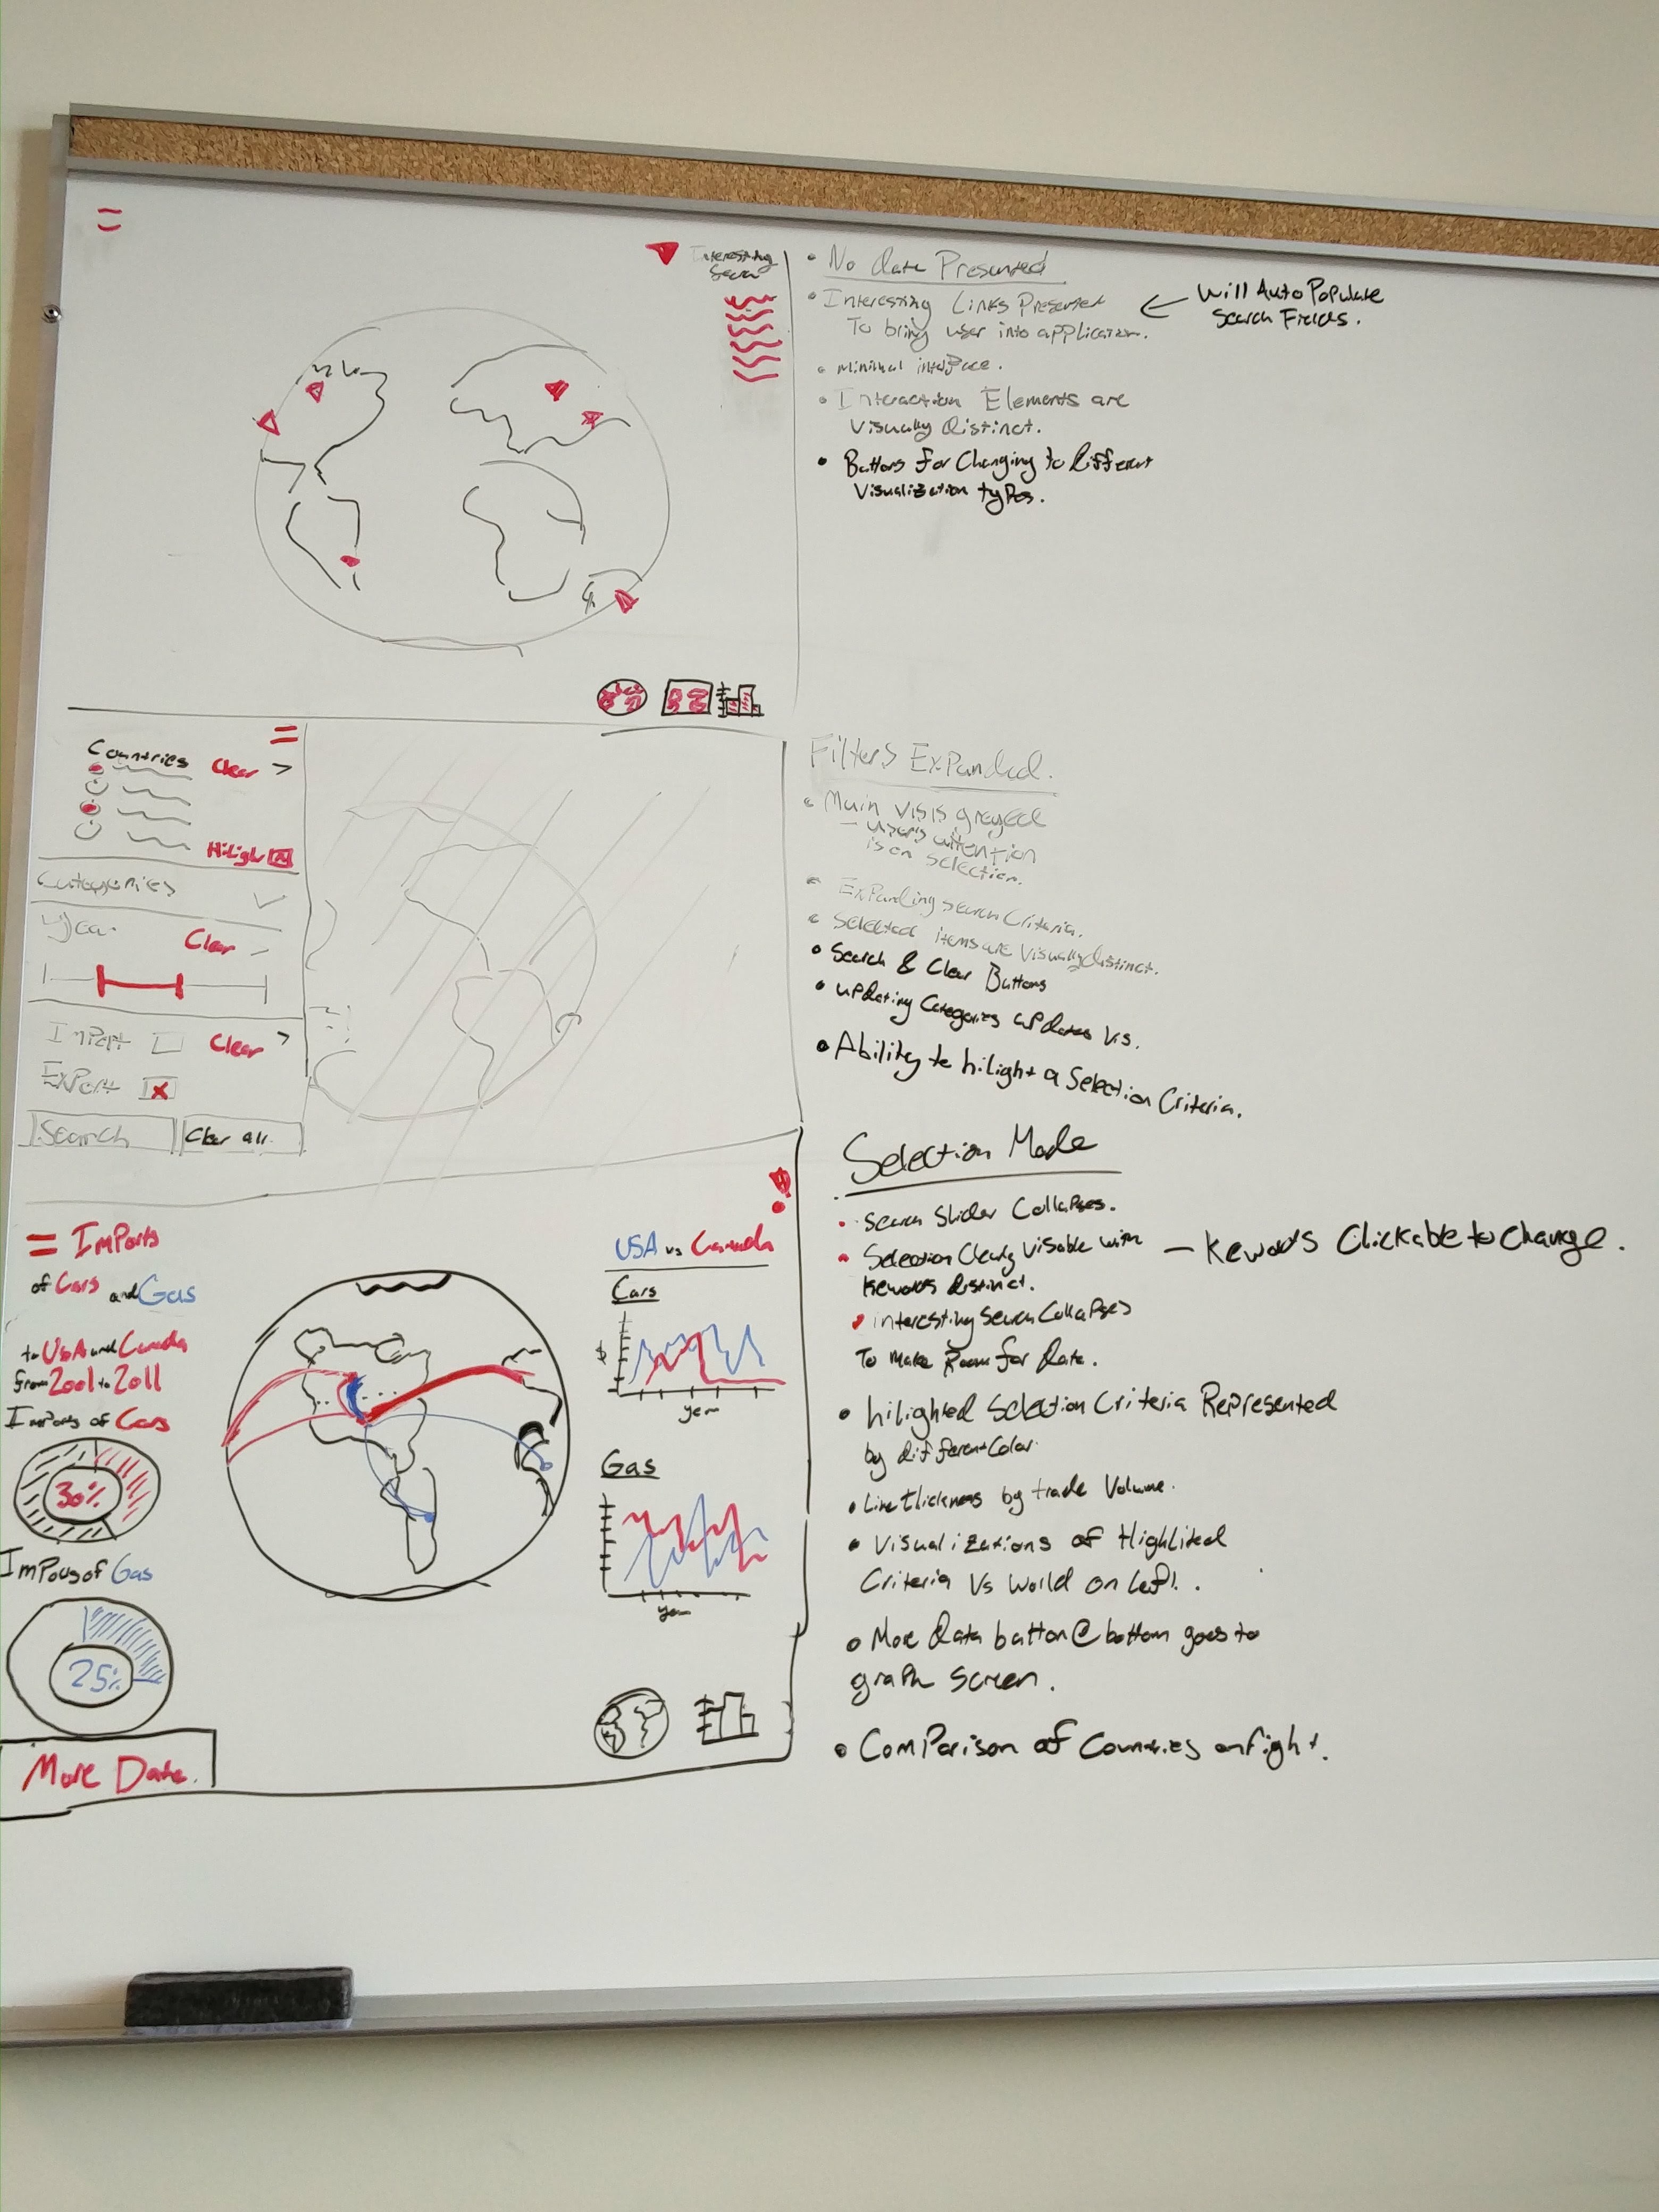 Interesting
• No Data Presented
• Interesting Links Presented
To bring user into application.
← Will Auto Populate
Search Fields.
• Minimal interface.
• Interaction Elements are
Visually Distinct.
• Buttons for Changing to Different
Visualization types.
Countries
Clear >
Hiligh
Categories
Year
Clear
Import
Clear >
Export
Search
Clear all
Filters Expanded.
• Main vis is greyed
- users attention
is on selection.
• Expanding search Criteria.
• Selected items are Visually distinct.
• Search & Clear Buttons
• updating Categories updates Vis.
• Ability to hilight a Selection Criteria.
= Imports
of Cars and Gas
to USA and Canada
from 2001 to 2011
Imports of Cars
30%
Imports of Gas
25%
More Data
USA vs Canada
Cars
$
year
Gas
year
Selection Mode
• Search Slider Collapses.
• Selection Clearly Visable with
Kewords distinct.
— Kewords Clickable to Change.
• interesting Search Collapses
To Make Room for Data.
• hilighted Selection Criteria Represented
by different Color.
• Line thickness by trade Volume.
• Visualizations of Highlited
Criteria Vs World on Left.
• More Data button @ bottom goes to
graph Screen.
• Comparison of Countries on right.